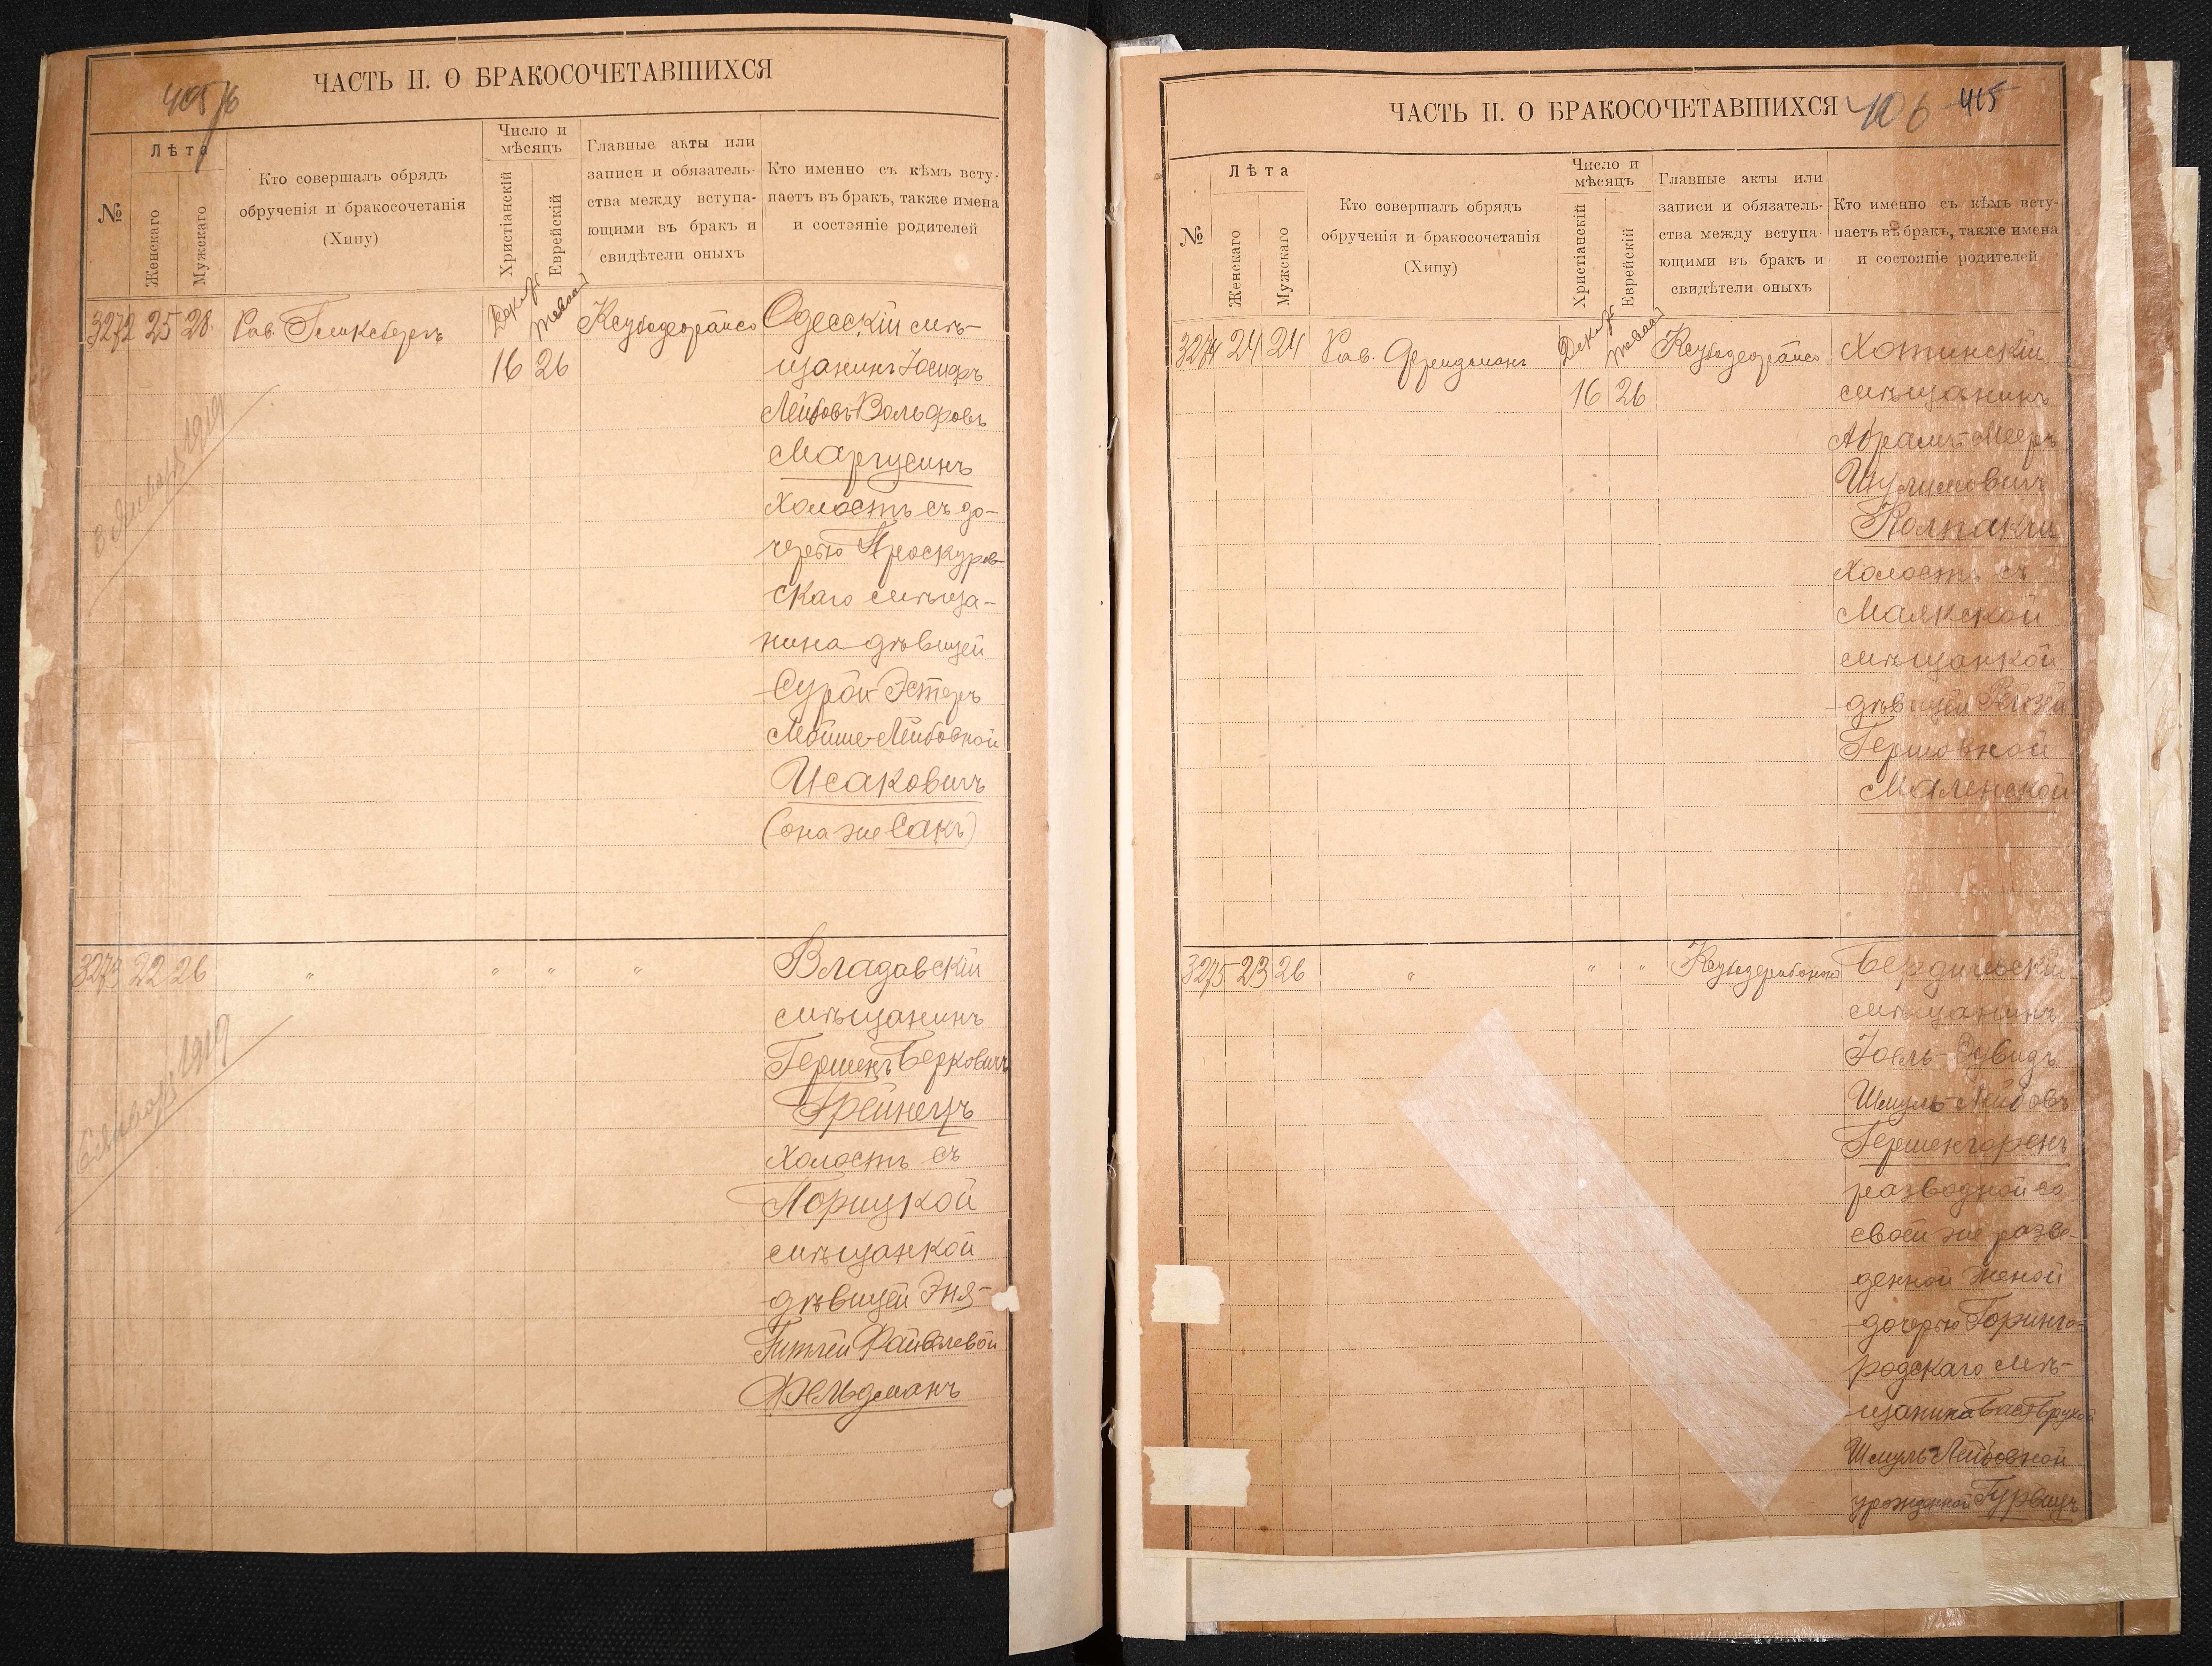 ЧАСТЬ II. О БРАКОСОЧЕТАВШИХСЯ
405
№
Лѣта
Женскаго
Мужскаго
Кто совершалъ обрядъ
обрученія и бракосочетанія
(Хипу)
Число и
мѣсяцъ
Христіанскій
Еврейскій
Главные акты или
записи и обязатель-
ства между вступа-
ющими въ бракъ и
свидѣтели оныхъ
Кто именно съ кѣмъ всту-
паетъ въ бракъ, также имена
и состояніе родителей
3272 25 28 Рав. 16 26
Одесскій мѣ-
щанинъ Іосифъ
Лейбовъ-Вольфовъ
Маргусинъ
холостъ съ до-
черью Проскуров-
скаго мѣща-
нина дѣвицей
Сурой-Эстеръ
Мойше-Лейбовной
Исаковичъ
(она же Сакъ)
3 Января 1919
3273 22 26 " " " "
Владавскій
мѣщанинъ
Гершенъ Берковичъ
Грейнецъ
холостъ съ
Порицкой
мѣщанкой
дѣвицей Эня-
Гитлей Файвелевой
Фельдманъ
Января 1919
ЧАСТЬ II. О БРАКОСОЧЕТАВШИХСЯ
406 415
№
Лѣта
Женскаго
Мужскаго
Кто совершалъ обрядъ
обрученія и бракосочетанія
(Хипу)
Число и
мѣсяцъ
Христіанскій
Еврейскій
Главные акты или
записи и обязатель-
ства между вступа
ющими въ бракъ и
свидѣтели оныхъ
Кто именно съ кѣмъ всту-
паетъ въ бракъ, также имена
и состояніе родителей
3274 24 24 Рав. Фридманъ 16 26
Хотинскій
мѣщанинъ
Абрамъ-Мееръ
Шулимовичъ
Колпакчи
холостъ съ
Маякской
мѣщанкой
дѣвицей Рейзей
Гершовной
Маленской
3275 23 26 " " "
Бердичевскій
мѣщанинъ
Іоель-Дувидъ
Шмуль-Лейбовъ
Гершенгоренъ
разводной со
своей же разве-
денной женой
дочерью Горинго-
родскаго мѣ-
щанина
Шмуль-Лейбовной
урожденной Гурвицъ